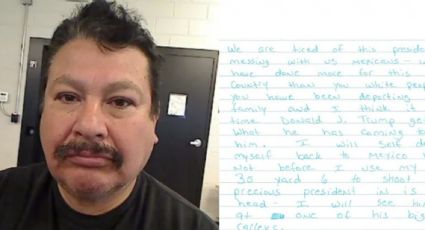 We are tired of this preside
messing with us mexicans - w
have done more for this
Country than you white peop
you have been deporting
family and I think it
time Donald J. Trump ge
What he has coming t
him. I will self de
myself back to mexico
Not before I use my
30 yard 6 to shoot
precious president in is
head - I will see hi
at one of his big
ralleys.